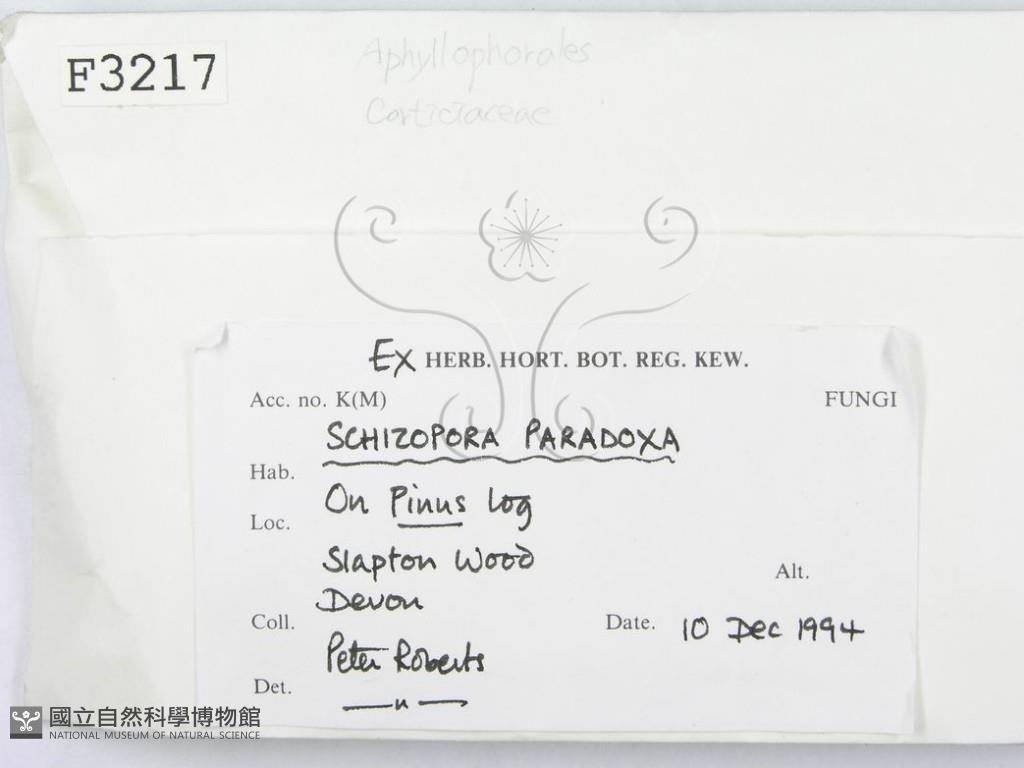 F3217
Aphyllophorales
Corticiaceae
Ex HERB. HORT. BOT. REG. KEW.
Acc. no. K(M) FUNGI
SCHIZOPORA PARADOXA
Hab.
On Pinus log
Loc.
Slapton Wood
Alt.
Devon
Coll. Date. 10 Dec 1994
Peter Roberts
Det.
—— " ——
國立自然科學博物館
NATIONAL MUSEUM OF NATURAL SCIENCE